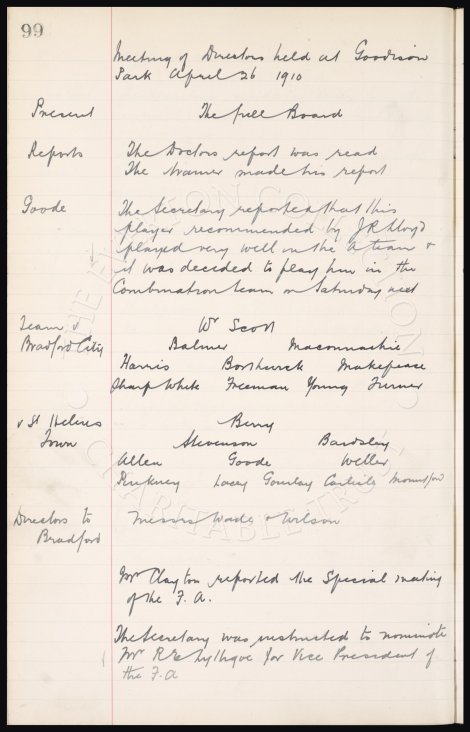 99
Meeting of Directors held at Goodison
Park April 26 1910
Present The full Board
Reports The Doctors report was read
The trainer made his report
Goode The Secretary reported that this
player recommended by J R Lloyd
played very well in the A team &
it was decided to play him in the
Combination team on Saturday next
Team v Wm Scott
Bradford City Balmer Maconnachie
Harris Borthwick Makepeace
Sharp White Freeman Young Turner
v St Helens Berry
Town Stevenson Bardsley
Allen Goode Weller
Pinkney Lacey Gourlay Carlisle Mountford
Directors to Messrs Wade & Wilson
Bradford
Mr Clayton reported the Special meeting
of the F.A.
The Secretary was instructed to nominate
Mr R E Lythgoe for Vice President of
the F.A
THE EVERTON COLLECTION
CHARITABLE TRUST